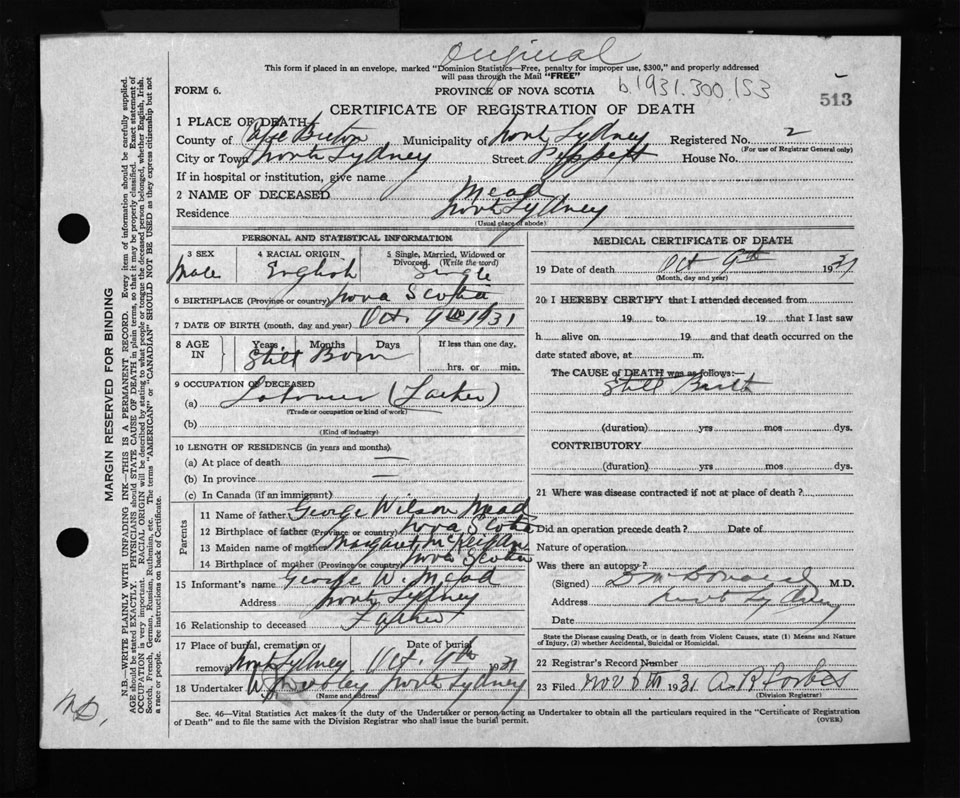 Original
This form if placed in an envelope, marked "Dominion Statistics—Free, penalty for improper use, $300," and properly addressed
will pass through the Mail "FREE"
b.1931.300.153
FORM 6.
PROVINCE OF NOVA SCOTIA
513
CERTIFICATE OF REGISTRATION OF DEATH
1 PLACE OF DEATH
County of Cape Breton Municipality of North Sydney Registered No. 2
(For use of Registrar General only)
City or Town North Sydney Street Peppett House No.
If in hospital or institution, give name
2 NAME OF DECEASED Mead
Residence North Sydney
(Usual place of abode)
PERSONAL AND STATISTICAL INFORMATION
3 SEX Male
4 RACIAL ORIGIN English
5 Single, Married, Widowed or Divorced. (Write the word) Single
6 BIRTHPLACE (Province or country) Nova Scotia
7 DATE OF BIRTH (month, day and year) Oct. 9th 1931
8 AGE IN Years Months Days If less than one day,
Still Born
hrs. or min.
9 OCCUPATION OF DECEASED
(a) Laborer (Father)
(Trade or occupation or kind of work)
(b)
(Kind of industry)
10 LENGTH OF RESIDENCE (in years and months)
(a) At place of death —
(b) In province —
(c) In Canada (if an immigrant)
Parents
11 Name of father George Wilson Mead
12 Birthplace of father (Province or country) Nova Scotia
13 Maiden name of mother Margaret
14 Birthplace of mother (Province or country) Nova Scotia
15 Informant's name George W. Mead
Address North Sydney
16 Relationship to deceased Father
17 Place of burial, cremation or removal North Sydney Date of burial Oct. 9th 1931
18 Undertaker North Sydney
(Name and address)
MEDICAL CERTIFICATE OF DEATH
19 Date of death Oct 9th 1931
(Month, day and year)
20 I HEREBY CERTIFY that I attended deceased from
19 to 19 that I last saw
h alive on 19 and that death occurred on the
date stated above, at m.
The CAUSE of DEATH was as follows:—
Still Birth
(duration) yrs mos dys.
CONTRIBUTORY
(duration) yrs mos dys.
21 Where was disease contracted if not at place of death?
Did an operation precede death? Date of
Nature of operation
Was there an autopsy?
(Signed) M.D.
Address North Sydney
Date
State the Disease causing Death, or in death from Violent Causes, state (1) Means and Nature
of Injury, (2) whether Accidental, Suicidal or Homicidal.
22 Registrar's Record Number
23 Filed Nov 6th 1931 A. R. Forbes
(Division Registrar)
Sec. 46—Vital Statistics Act makes it the duty of the Undertaker or person acting as Undertaker to obtain all the particulars required in the "Certificate of Registration
of Death" and to file the same with the Division Registrar who shall issue the burial permit.
(OVER)
MARGIN RESERVED FOR BINDING
N.B.—WRITE PLAINLY WITH UNFADING INK—THIS IS A PERMANENT RECORD. Every item of information should be carefully supplied.
AGE should be stated EXACTLY. PHYSICIANS should STATE CAUSE OF DEATH in plain terms, so that it may be properly classified. Exact statement of
OCCUPATION is very important. RACIAL ORIGIN will be described by stating to what people or tongue the deceased person belonged, whether English, Irish,
Scotch, French, German, Russian, Ruthenian, etc. The terms "AMERICAN" or "CANADIAN" SHOULD NOT BE USED as they express citizenship but not
a race or people. See instructions on back of Certificate.